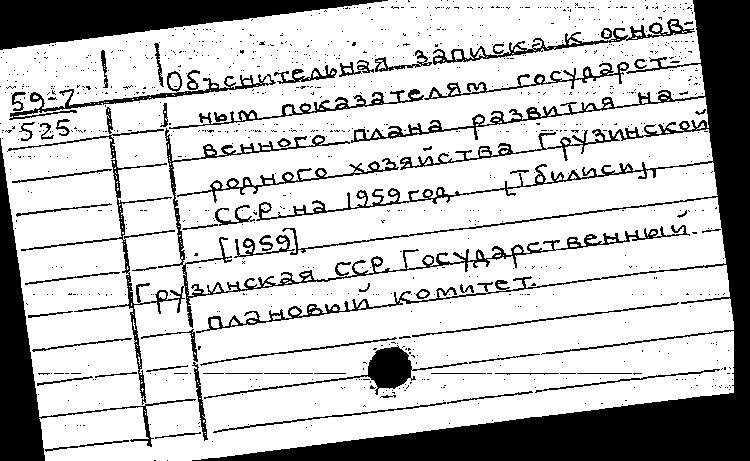 Объснительная записка к основ-
59-7
525
ным показателям государст-
венного плана развития на-
родного хозяйства Грузинской
ССР на 1959 год. [Тбилиси],
[1959].
Грузинская ССР. Государственный
плановый комитет.